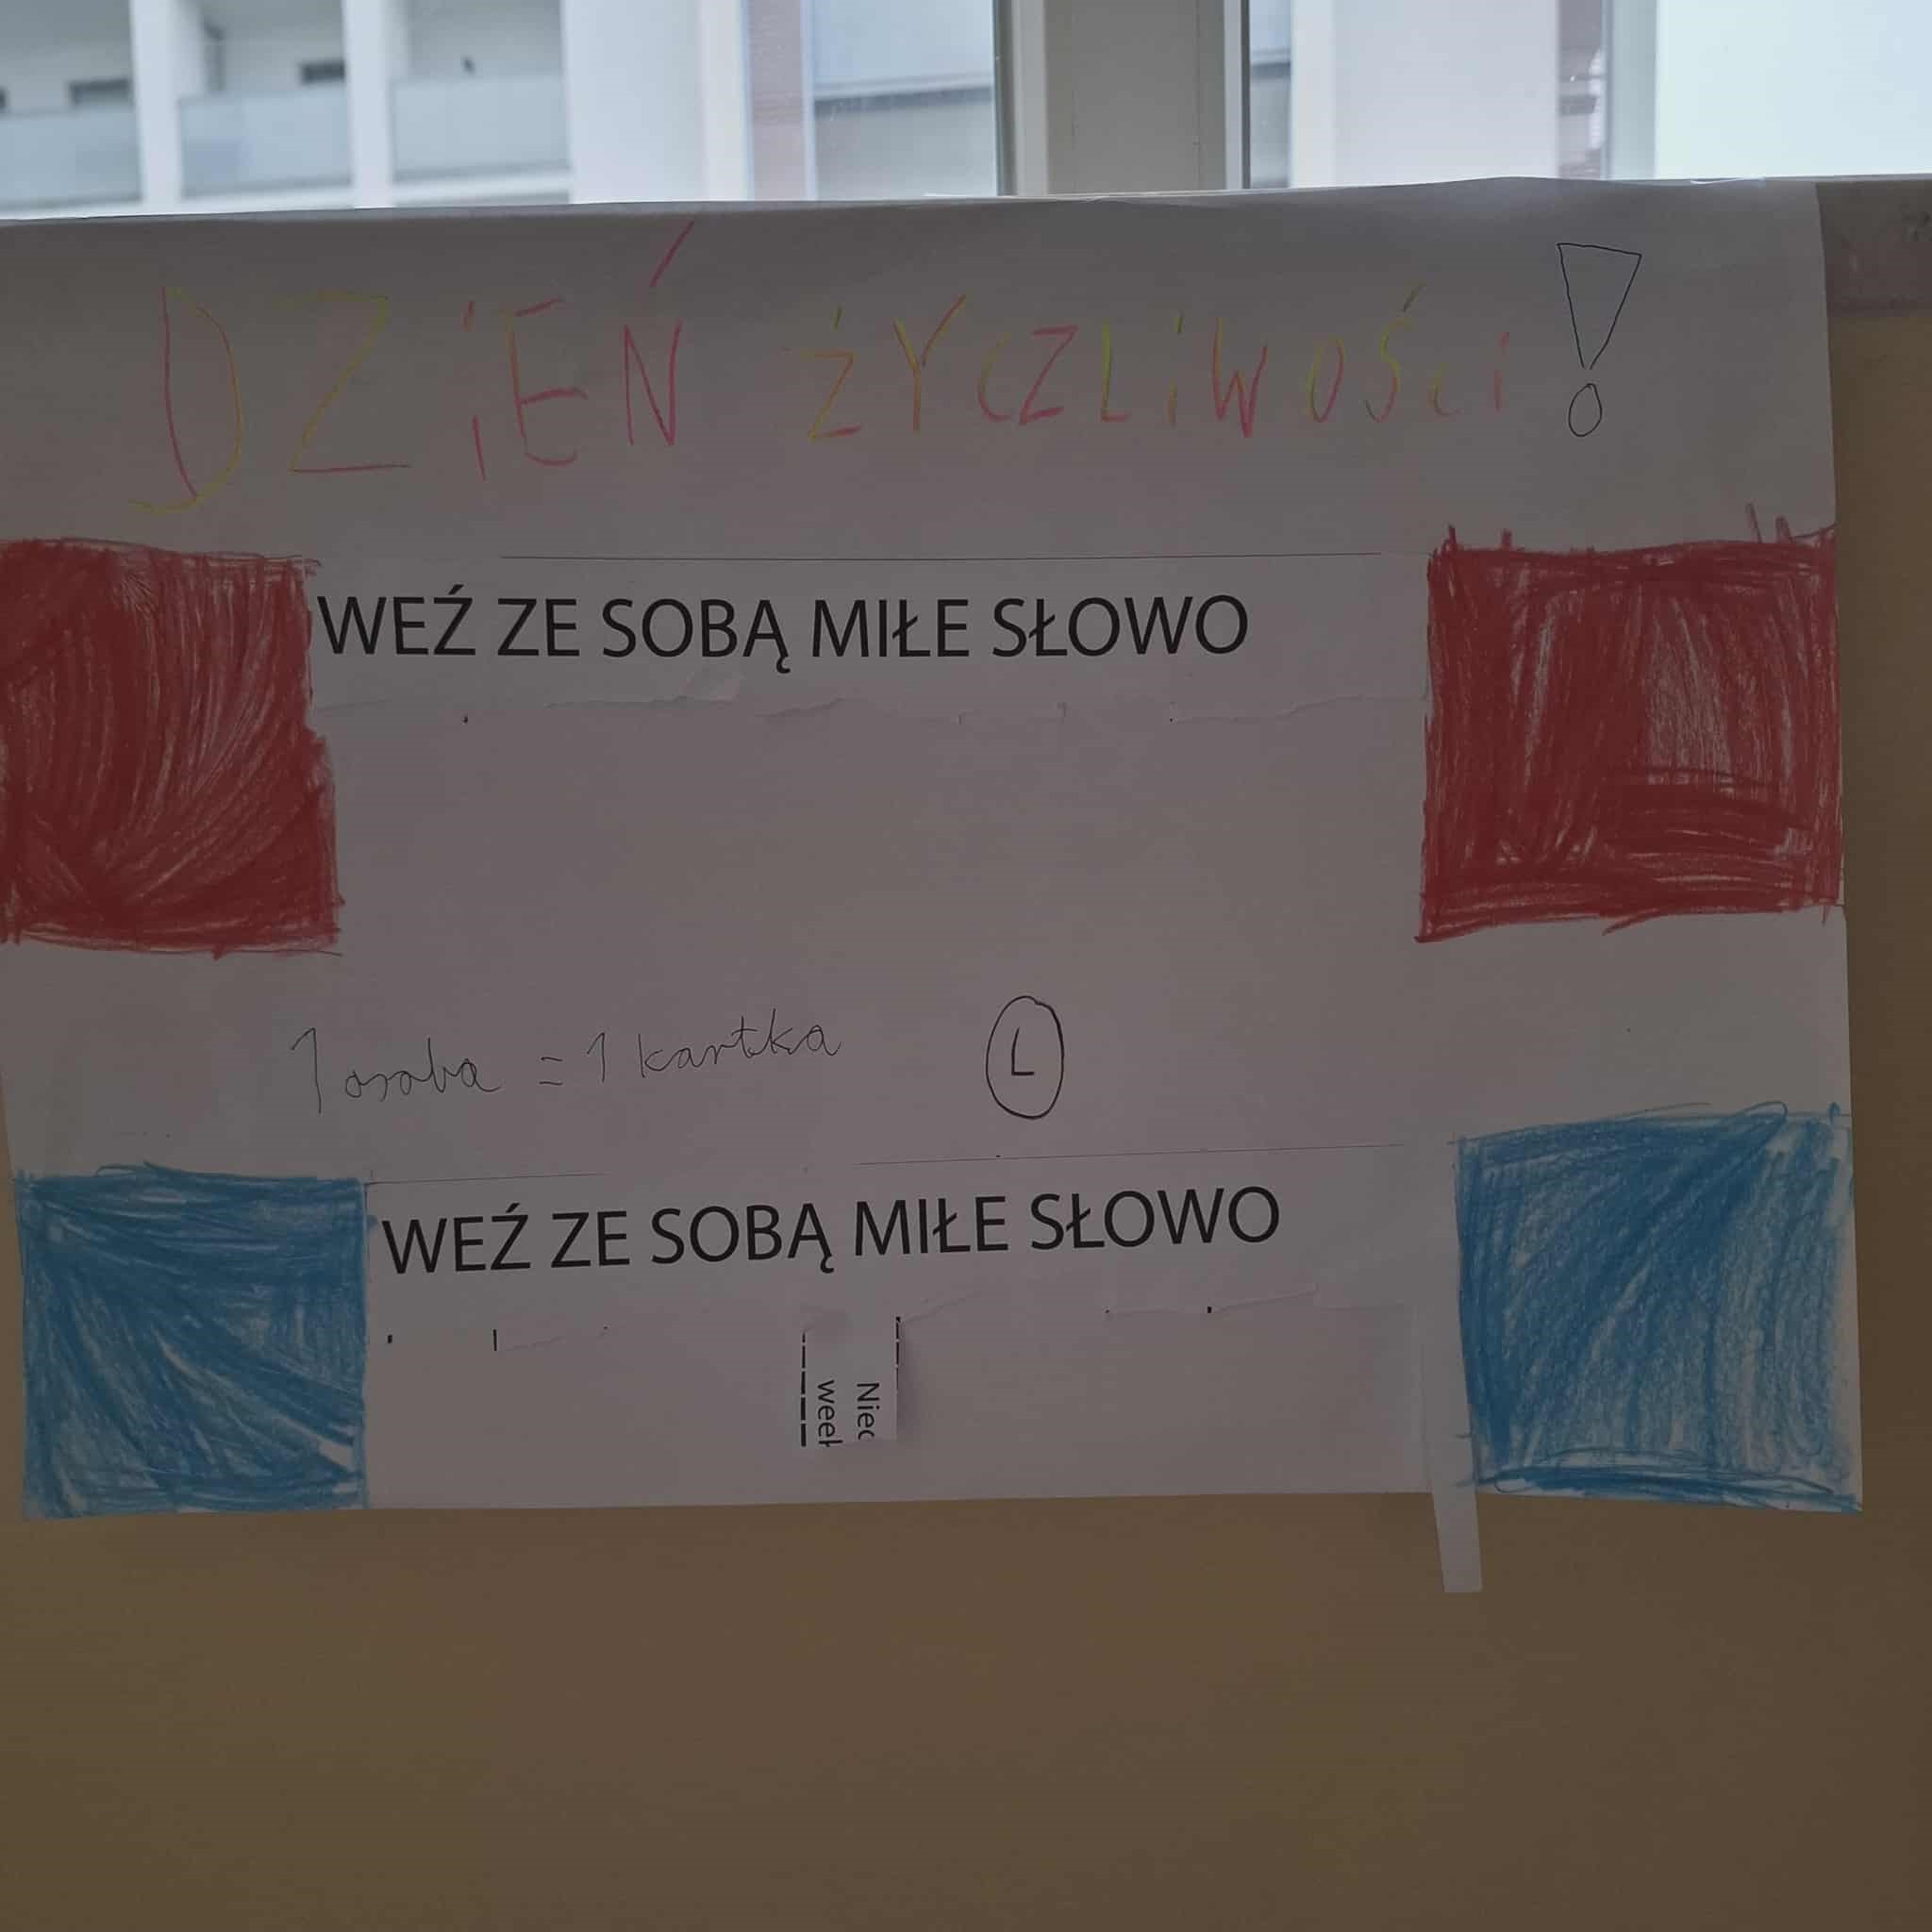 DZiEŃ ŻYCZLiWOŚCi!
WEŹ ZE SOBĄ MIŁE SŁOWO
1 osoba = 1 kartka
L
WEŹ ZE SOBĄ MIŁE SŁOWO